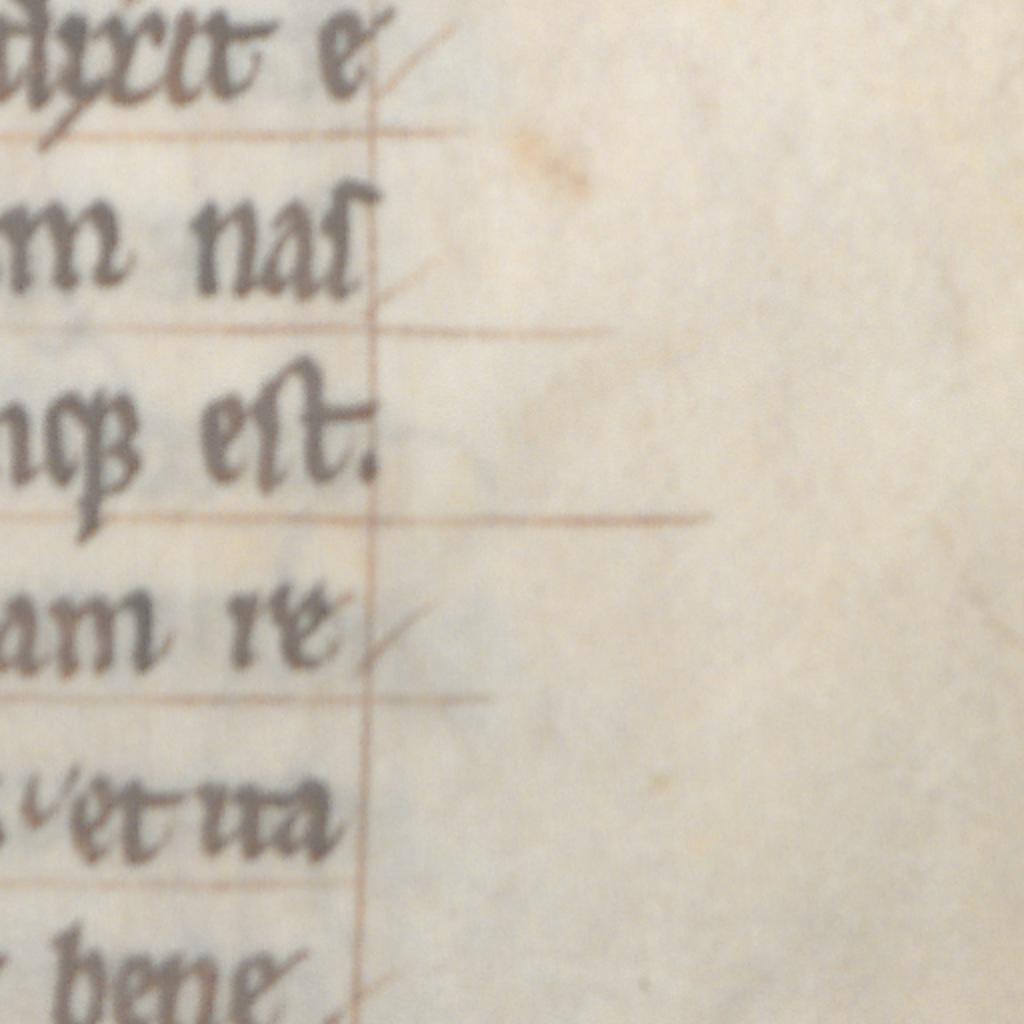 dixit e
m naſ
nqꝫ eſt.
am re
et ita
bene